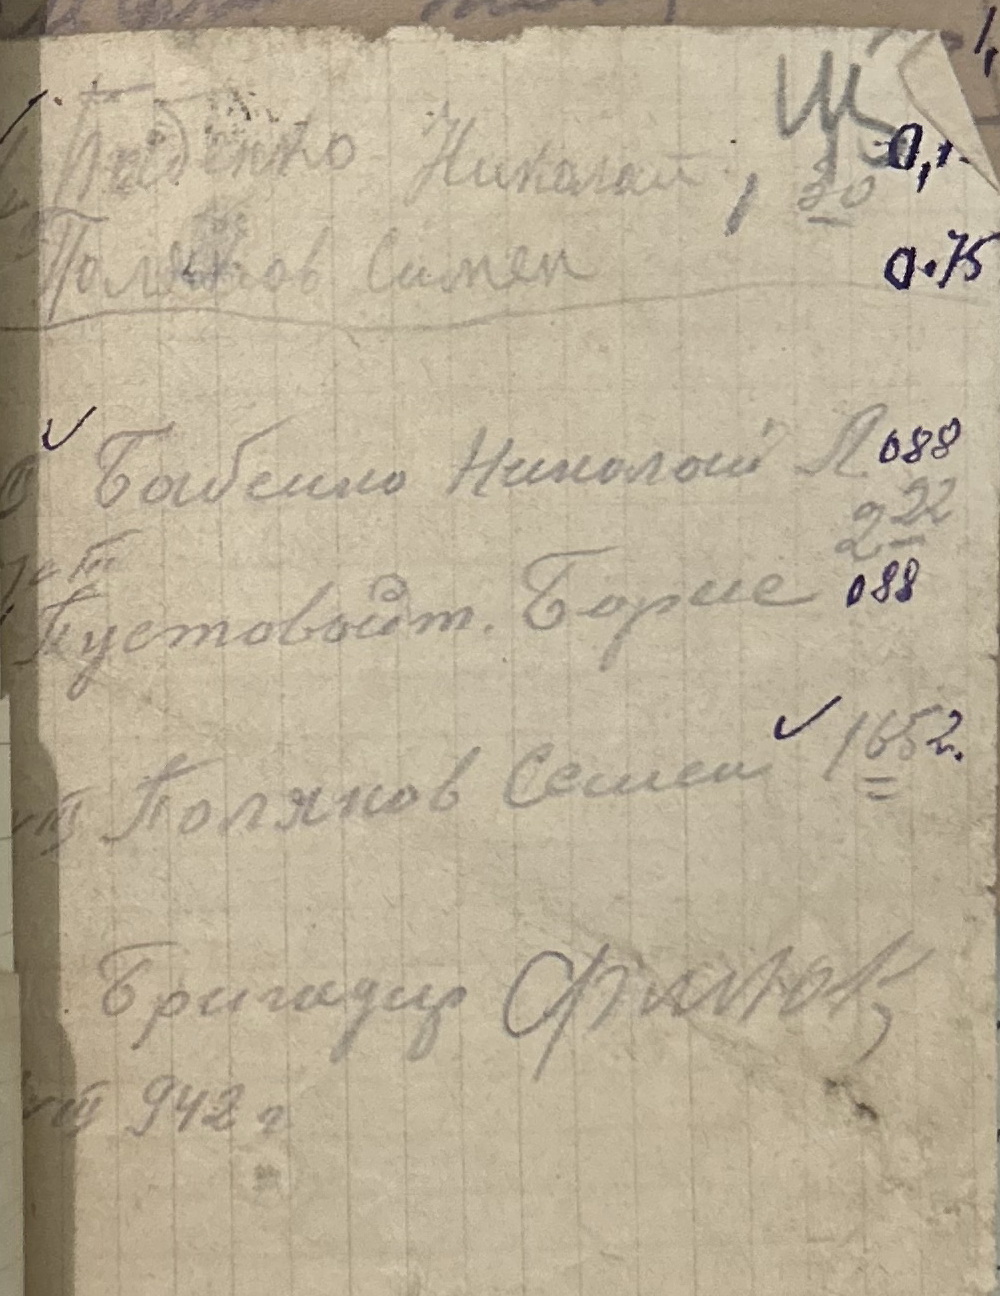 Бабенко Николай 1 20 0,1
Поляков Симен 0.75
Бабенко Николай Л 088
2 22
Пустовойт. Борис 088
Поляков Семен 1652.
Бригадир
III 942 г